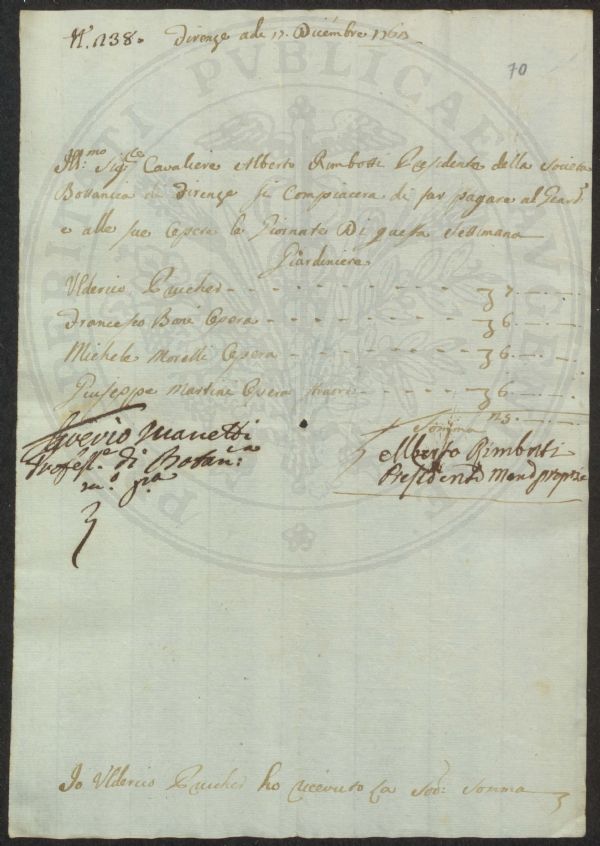 N.º 1238. Firenze adi 17. Dicembre 1763
70
Ill:mo Sig:re Cavaliere Alberto Rimbotti Presidente della Societa
Bottanica di Firenze si Compiacera di far pagare al Giard:
e alle sue Opera le Giornate Di questa Settimana
Giardiniere
Ulderico Prucher 7
Francesco Bani Opera 6
Michele Morelli Opera 6
Giuseppe Martini Opera 6
Somma 25
Saverio Manetti
Profess:e di Botan:ca
m:o p:a
Alberto Rimbotti
Presidente Mano propria
Io Ulderico Prucher ho ricevuto la Sod: Somma